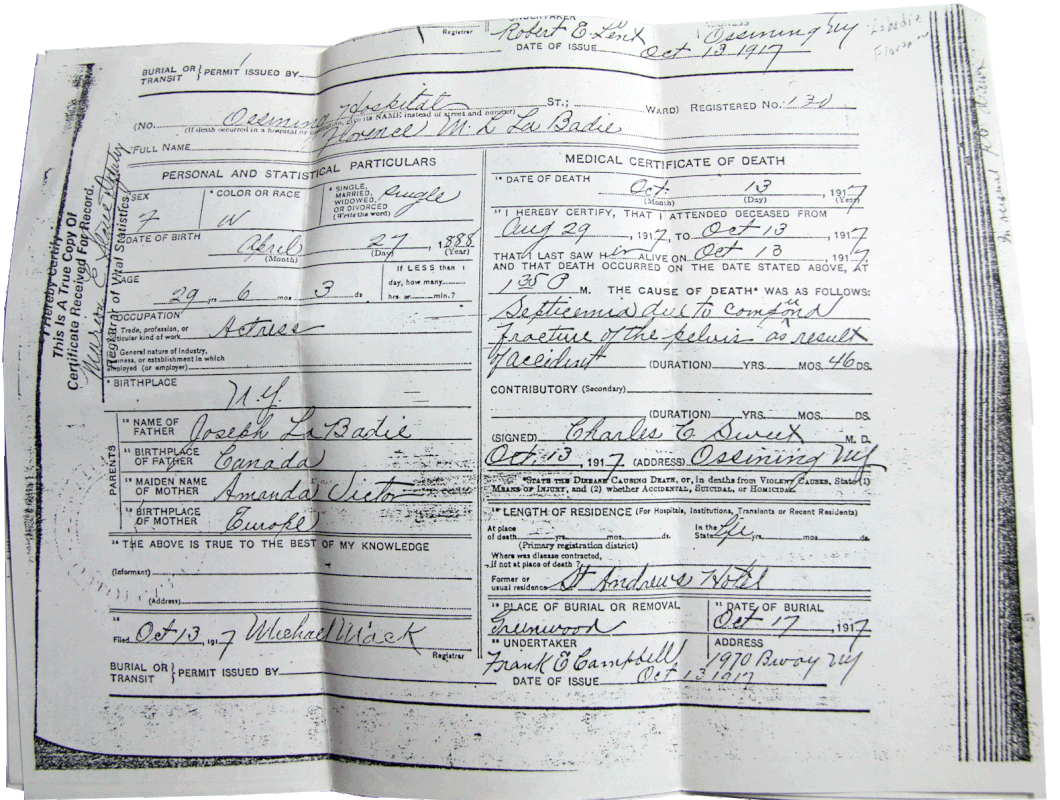 UNDERTAKER
Registrar
Robert E Lent
Ossining NY
DATE OF ISSUE Oct 13 1917
Labadie
BURIAL OR TRANSIT } PERMIT ISSUED BY
(No. Ossining Hospital ST.; WARD) REGISTERED No. 130
(If death occurred in a hospital or institution, give its NAME instead of street and number)
FULL NAME Florence M. L La Badie
PERSONAL AND STATISTICAL PARTICULARS
SEX
F
COLOR OR RACE
W
SINGLE, MARRIED, WIDOWED, OR DIVORCED
(Write the word)
Single
DATE OF BIRTH
April 27, 1888
(Month) (Day) (Year)
AGE
29 yrs 6 mos 3 ds
If LESS than 1 day, how many
hrs. or min.?
OCCUPATION
Trade, profession, or particular kind of work Actress
General nature of industry, business, or establishment in which employed (or employer)
BIRTHPLACE
N.Y.
PARENTS
10 NAME OF FATHER Joseph La Badie
11 BIRTHPLACE OF FATHER Canada
12 MAIDEN NAME OF MOTHER Amanda Victor
13 BIRTHPLACE OF MOTHER Europe
14 THE ABOVE IS TRUE TO THE BEST OF MY KNOWLEDGE
(Informant)
(Address)
15
Filed Oct 13, 1917 Michael Mack
Registrar
BURIAL OR TRANSIT } PERMIT ISSUED BY
MEDICAL CERTIFICATE OF DEATH
16 DATE OF DEATH
Oct. 13 1917
(Month) (Day) (Year)
17 I HEREBY CERTIFY, THAT I ATTENDED DECEASED FROM
Aug 29, 1917, TO Oct 13, 1917
THAT I LAST SAW HER ALIVE ON Oct 13, 1917
AND THAT DEATH OCCURRED ON THE DATE STATED ABOVE, AT
1 30 P M. THE CAUSE OF DEATH* WAS AS FOLLOWS:
Septicemia due to compound
fracture of the pelvis as result
of accident (DURATION) YRS. MOS. 46 DS.
CONTRIBUTORY (Secondary)
(DURATION) YRS. MOS. DS.
(SIGNED) Charles C Sweet M. D.
Oct. 13, 1917 (ADDRESS) Ossining NY
*STATE THE DISEASE CAUSING DEATH, or, in deaths from VIOLENT CAUSES, State (1)
MEANS OF INJURY, and (2) whether ACCIDENTAL, SUICIDAL, or HOMICIDAL.
18 LENGTH OF RESIDENCE (For Hospitals, Institutions, Transients or Recent Residents)
At place of death yrs. mos. ds.
In the State Life yrs. mos. ds.
(Primary registration district)
Where was disease contracted,
If not at place of death?
Former or usual residence St Andrews Hotel
19 PLACE OF BURIAL OR REMOVAL
Greenwood
DATE OF BURIAL
Oct 17, 1917
20 UNDERTAKER
Frank E Campbell
ADDRESS
1970 Bway NY
DATE OF ISSUE Oct 13 1917
I Hereby Certify
This Is A True Copy Of
Certificate Received For Record.
Registrar of Vital Statistics